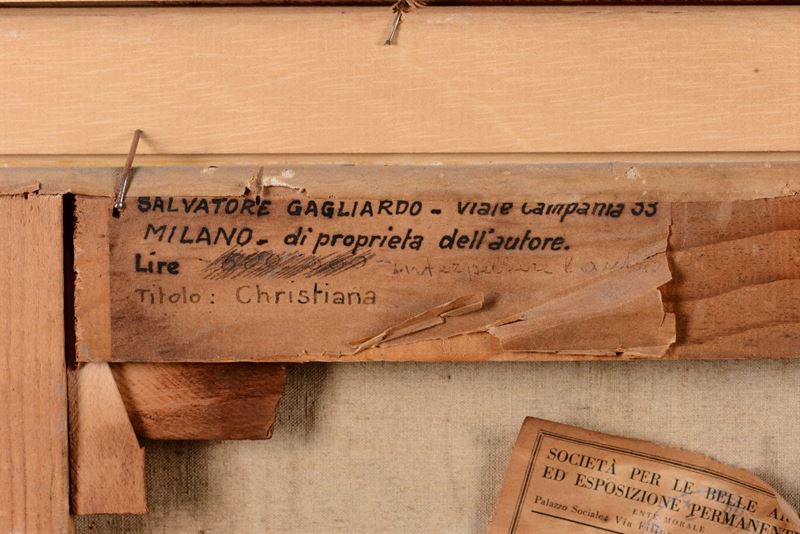 SALVATORE GAGLIARDO - Viale Campania 33
MILANO - di proprietà dell'autore.
Lire
Titolo: Christiana
SOCIETÀ PER LE BELLE
ED ESPOSIZIONE PERMANENT
ENTE MORALE
Palazzo Sociale: Via